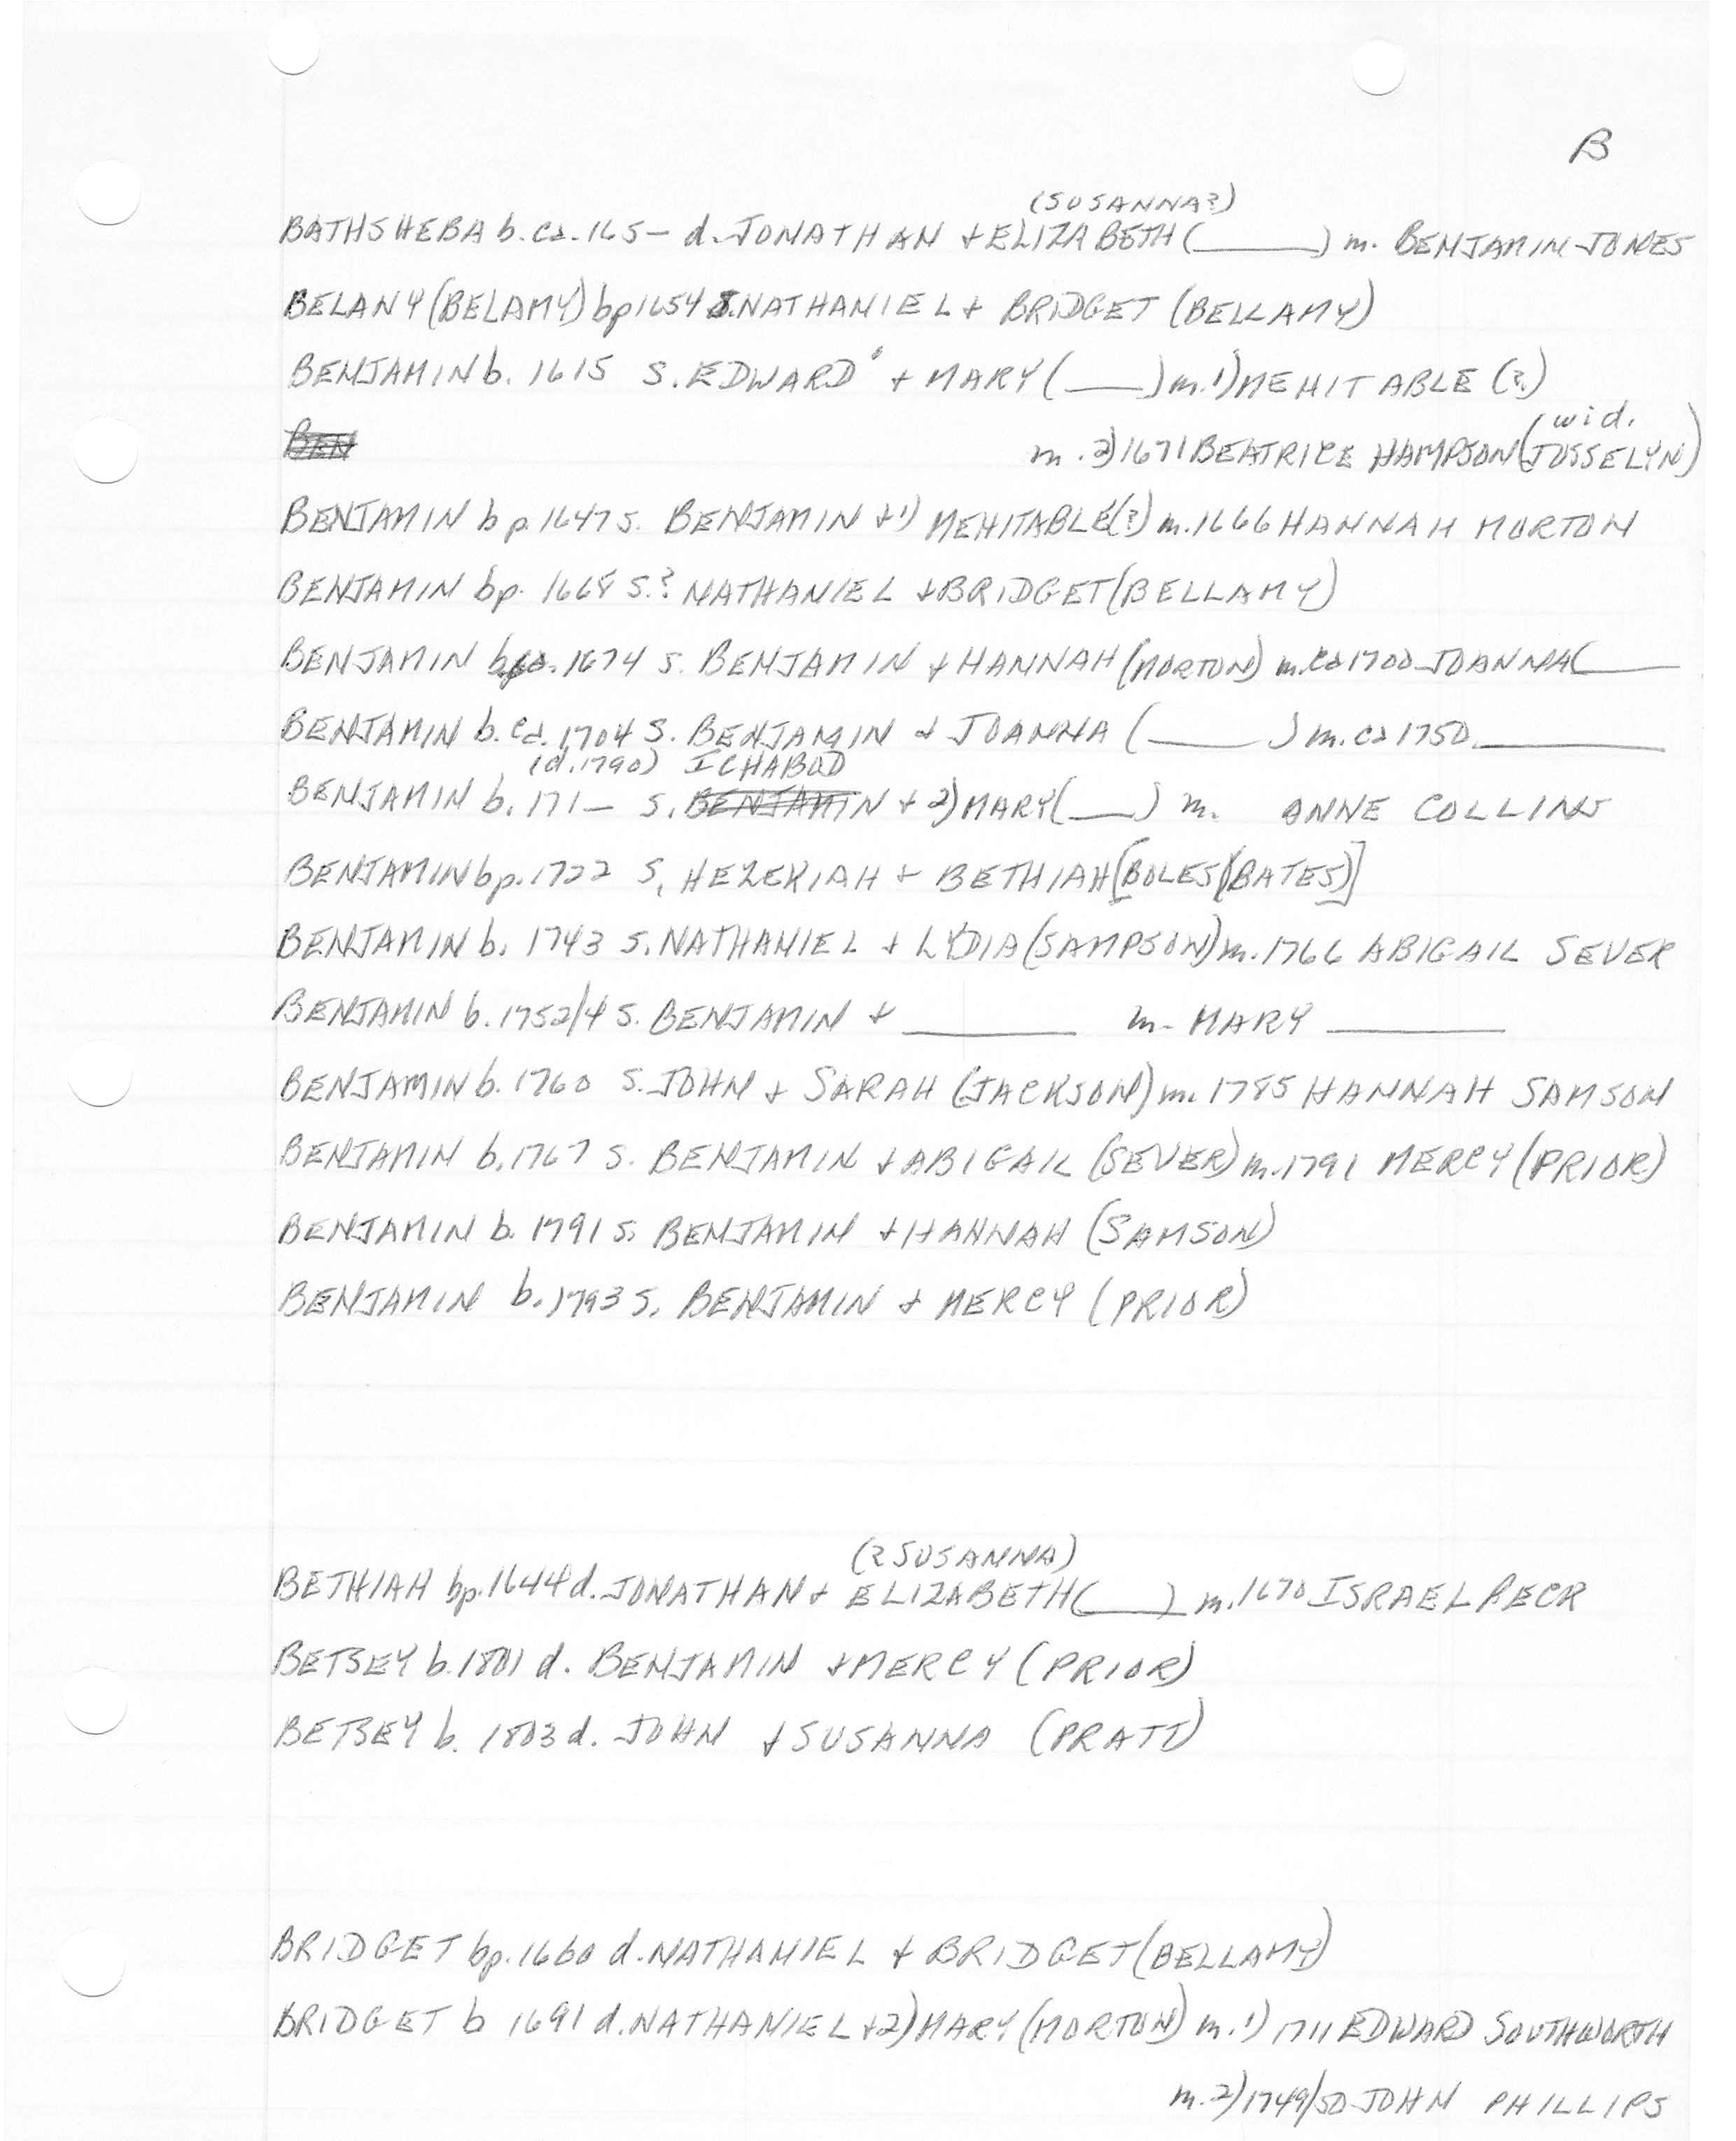 B
(SUSANNA?)
BATHSHEBA b. ca. 165– d. JONATHAN + ELIZABETH (______) m. BENJAMIN JONES
BELANY (BELAMY) bp 1654 s. NATHANIEL + BRIDGET (BELLAMY)
BENJAMIN b. 1615 S. EDWARD + MARY (____) m. 1) MEHITABLE (?)
wid.
BEN m. 2) 1671 BEATRICE HAMPSON (JOSSELYN)
BENJAMIN bp. 1647 s. BENJAMIN + 1) MEHITABLE (?) m. 1666 HANNAH MORTON
BENJAMIN bp. 1668 S.? NATHANIEL + BRIDGET (BELLAMY)
BENJAMIN b. 1674 s. BENJAMIN + HANNAH (MORTON) m. ca 1700 JOANNA (______
BENJAMIN b. ca. 1704 S. BENJAMIN + JOANNA (______) m. ca 1750 ________
(d. 1790) ICHABOD
BENJAMIN b. 171– S. BENJAMIN + 2) MARY (____) m. ANNE COLLINS
BENJAMIN bp. 1722 S. HEZEKIAH + BETHIAH [BOLES (BATES)]
BENJAMIN b. 1743 S. NATHANIEL + LYDIA (SAMPSON) m. 1766 ABIGAIL SEVER
BENJAMIN b. 1752/4 S. BENJAMIN + ________ m. MARY ________
BENJAMIN b. 1760 S. JOHN + SARAH (JACKSON) m. 1785 HANNAH SAMSON
BENJAMIN b. 1767 S. BENJAMIN + ABIGAIL (SEVER) m. 1791 MERCY (PRIOR)
BENJAMIN b. 1791 S. BENJAMIN + HANNAH (SAMSON)
BENJAMIN b. 1793 S. BENJAMIN + MERCY (PRIOR)
(? SUSANNA)
BETHIAH bp. 1644 d. JONATHAN + ELIZABETH (____) m. 1670 ISRAEL PECK
BETSEY b. 1801 d. BENJAMIN + MERCY (PRIOR)
BETSEY b. 1803 d. JOHN + SUSANNA (PRATT)
BRIDGET bp. 1660 d. NATHANIEL + BRIDGET (BELLAMY)
BRIDGET b 1691 d. NATHANIEL + 2) MARY (MORTON) m. 1) 1711 EDWARD SOUTHWORTH
m. 2) 1749/50 JOHN PHILLIPS